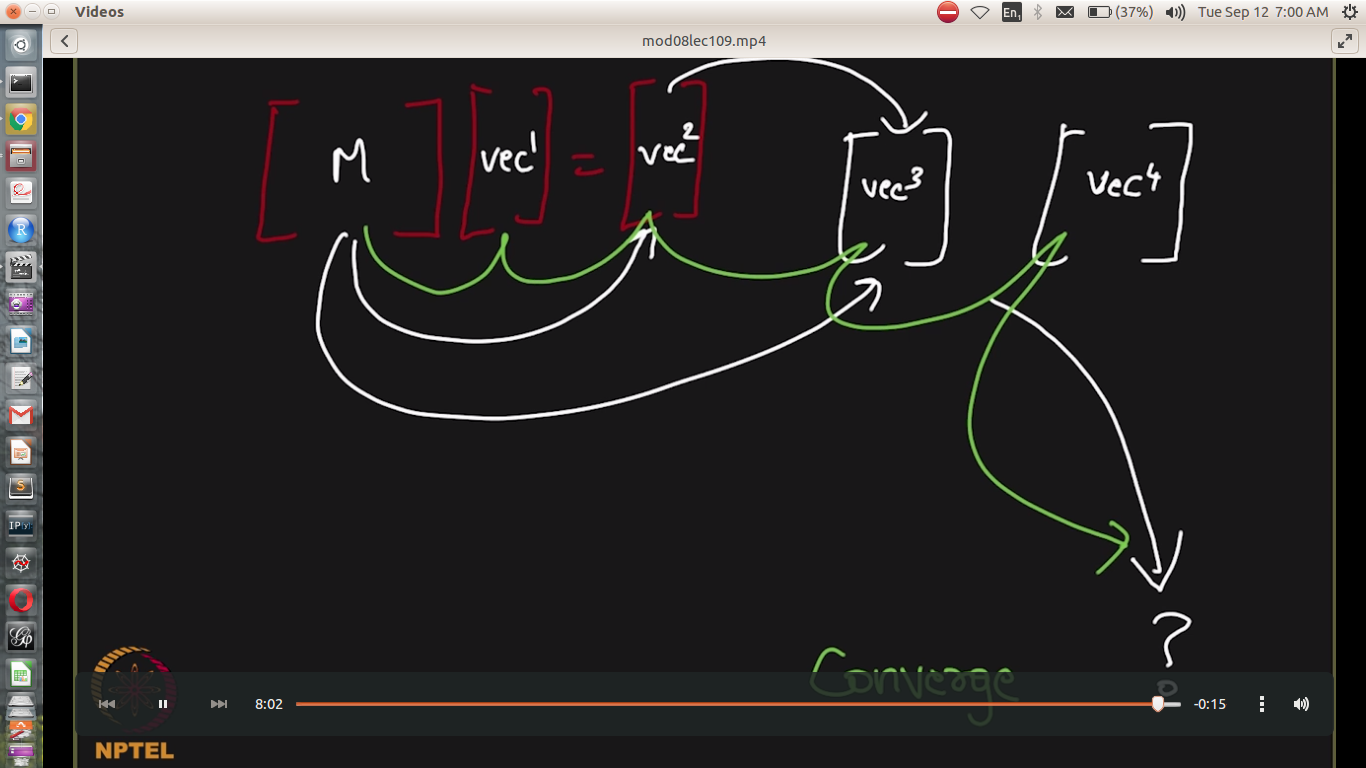 Videos
En1
(37%)
Tue Sep 12 7:00 AM
mod08lec109.mp4
M
vec1
=
vec2
vec3
vec4
?
Converge
8:02
-0:15
NPTEL